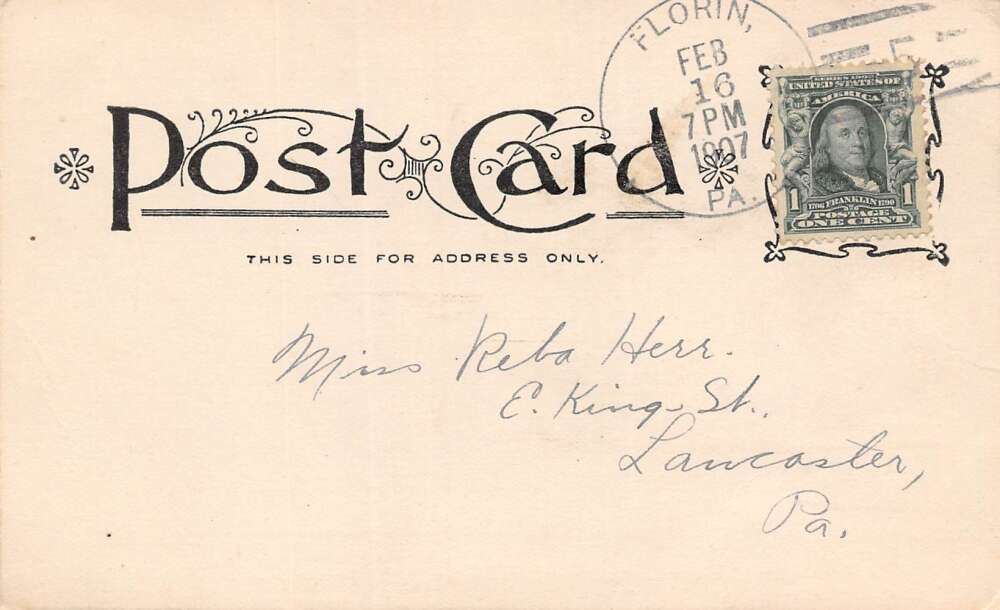 FLORIN,
FEB
16
7 PM
1907
PA.
Post Card
THIS SIDE FOR ADDRESS ONLY.
SERIES 1902
UNITED STATES OF
AMERICA
1 1
1706 FRANKLIN 1790
POSTAGE
ONE CENT
Miss Reba Herr.
E. King St.,
Lancaster,
Pa.